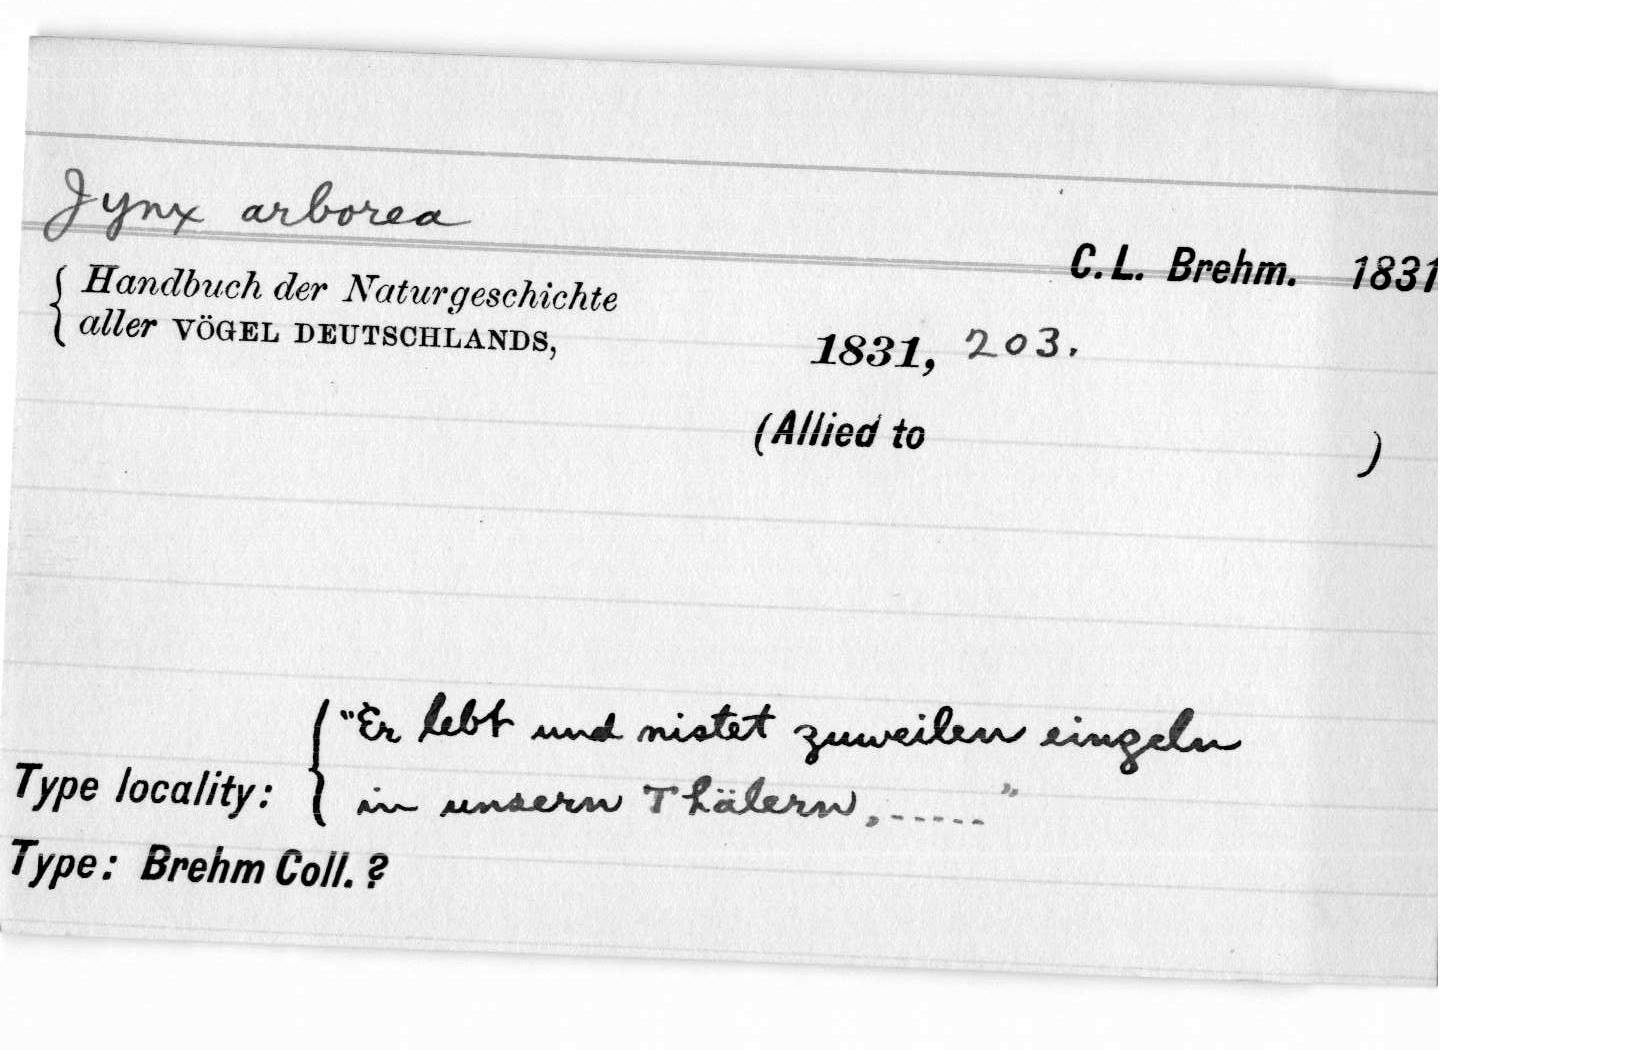 Jynx arborea
C. L. Brehm. 1831
{ Handbuch der Naturgeschichte
aller VÖGEL DEUTSCHLANDS,
1831, 203.
(Allied to )
"Er lebt und nistet zuweilen eingeln
Type locality: { in unsern Thälern, ..... "
Type: Brehm Coll. ?